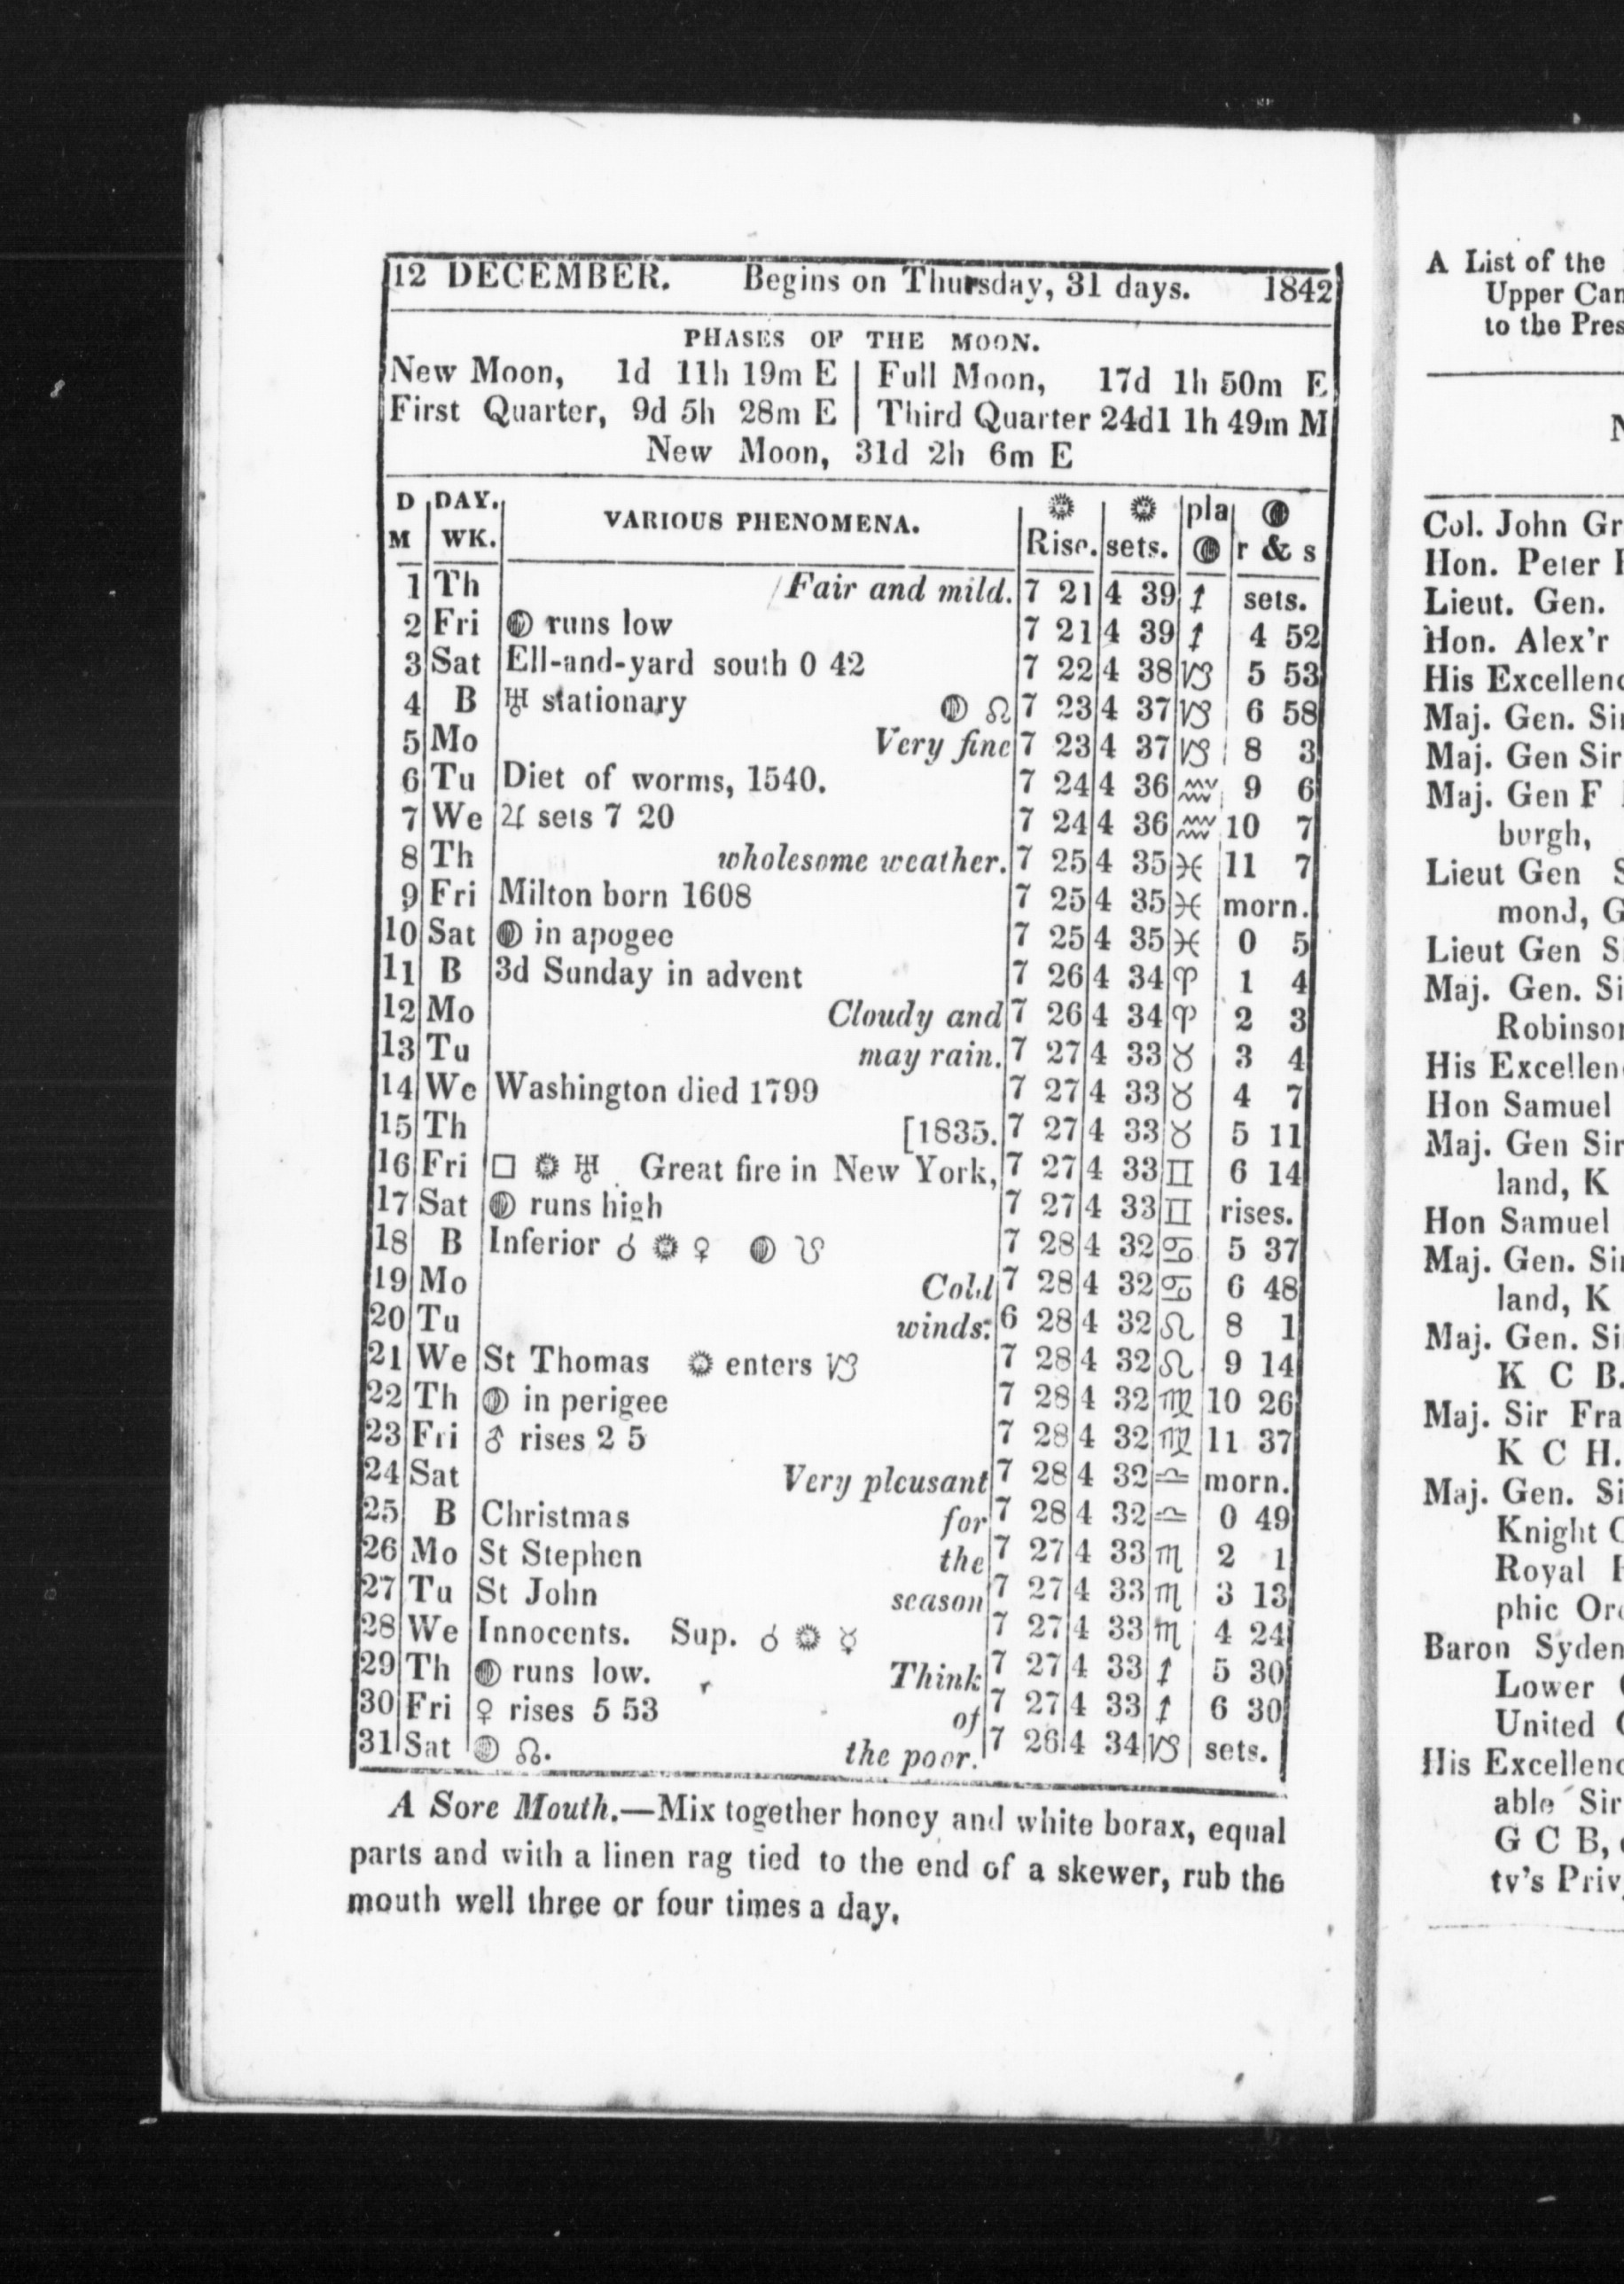 12 DECEMBER. Begins on Thursday, 31 days. 1842
PHASES OF THE MOON.
New Moon, 1d 11h 19m E | Full Moon, 17d 1h 50m E
First Quarter, 9d 5h 28m E | Third Quarter 24d1 1h 49m M
New Moon, 31d 2h 6m E
D M | DAY. WK. | VARIOUS PHENOMENA. | ☀ Rise. | ☀ sets. | pla ☽ | ☽ r & s
1 Th Fair and mild. 7 21 4 39 ♐ sets.
2 Fri ☽ runs low 7 21 4 39 ♐ 4 52
3 Sat Ell-and-yard south 0 42 7 22 4 38 ♑ 5 53
4 B ♅ stationary ☽ ☊ 7 23 4 37 ♑ 6 58
5 Mo Very fine 7 23 4 37 ♑ 8 3
6 Tu Diet of worms, 1540. 7 24 4 36 ♒ 9 6
7 We ♃ sets 7 20 7 24 4 36 ♒ 10 7
8 Th wholesome weather. 7 25 4 35 ♓ 11 7
9 Fri Milton born 1608 7 25 4 35 ♓ morn.
10 Sat ☽ in apogee 7 25 4 35 ♓ 0 5
11 B 3d Sunday in advent 7 26 4 34 ♈ 1 4
12 Mo Cloudy and 7 26 4 34 ♈ 2 3
13 Tu may rain. 7 27 4 33 ♉ 3 4
14 We Washington died 1799 7 27 4 33 ♉ 4 7
15 Th [1835. 7 27 4 33 ♉ 5 11
16 Fri □ ☀ ♅ Great fire in New York, 7 27 4 33 ♊ 6 14
17 Sat ☽ runs high 7 27 4 33 ♊ rises.
18 B Inferior ☌ ☀ ♀ ☽ ☋ 7 28 4 32 ♋ 5 37
19 Mo Cold 7 28 4 32 ♋ 6 48
20 Tu winds: 6 28 4 32 ♌ 8 1
21 We St Thomas ☀ enters ♑ 7 28 4 32 ♌ 9 14
22 Th ☽ in perigee 7 28 4 32 ♍ 10 26
23 Fri ♂ rises 2 5 7 28 4 32 ♍ 11 37
24 Sat Very pleusant 7 28 4 32 ♎ morn.
25 B Christmas for 7 28 4 32 ♎ 0 49
26 Mo St Stephen the 7 27 4 33 ♏ 2 1
27 Tu St John season 7 27 4 33 ♏ 3 13
28 We Innocents. Sup. ☌ ☀ ☿ 7 27 4 33 ♏ 4 24
29 Th ☽ runs low. Think 7 27 4 33 ♐ 5 30
30 Fri ♀ rises 5 53 of 7 27 4 33 ♐ 6 30
31 Sat ☽ ☊. the poor. 7 26 4 34 ♑ sets.
A Sore Mouth.—Mix together honey and white borax, equal
parts and with a linen rag tied to the end of a skewer, rub the
mouth well three or four times a day.
A List of the
Upper Can
to the Pres
Col. John Gr
Hon. Peter
Lieut. Gen.
Hon. Alex'r
His Excellenc
Maj. Gen. Sir
Maj. Gen Sir
Maj. Gen F
burgh,
Lieut Gen S
mond, G
Lieut Gen S
Maj. Gen. Si
Robinson
His Excellen
Hon Samuel
Maj. Gen Sir
land, K
Hon Samuel
Maj. Gen. Sir
land, K
Maj. Gen. Si
K C B.
Maj. Sir Fra
K C H.
Maj. Gen. Si
Knight C
Royal H
phic Ord
Baron Syden
Lower
United
His Excellenc
able Sir
G C B,
ty's Priv